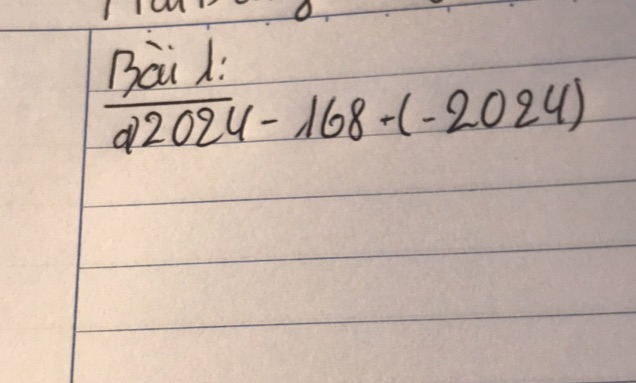 Bài 1:
a) 2024 - 168 + (- 2024)